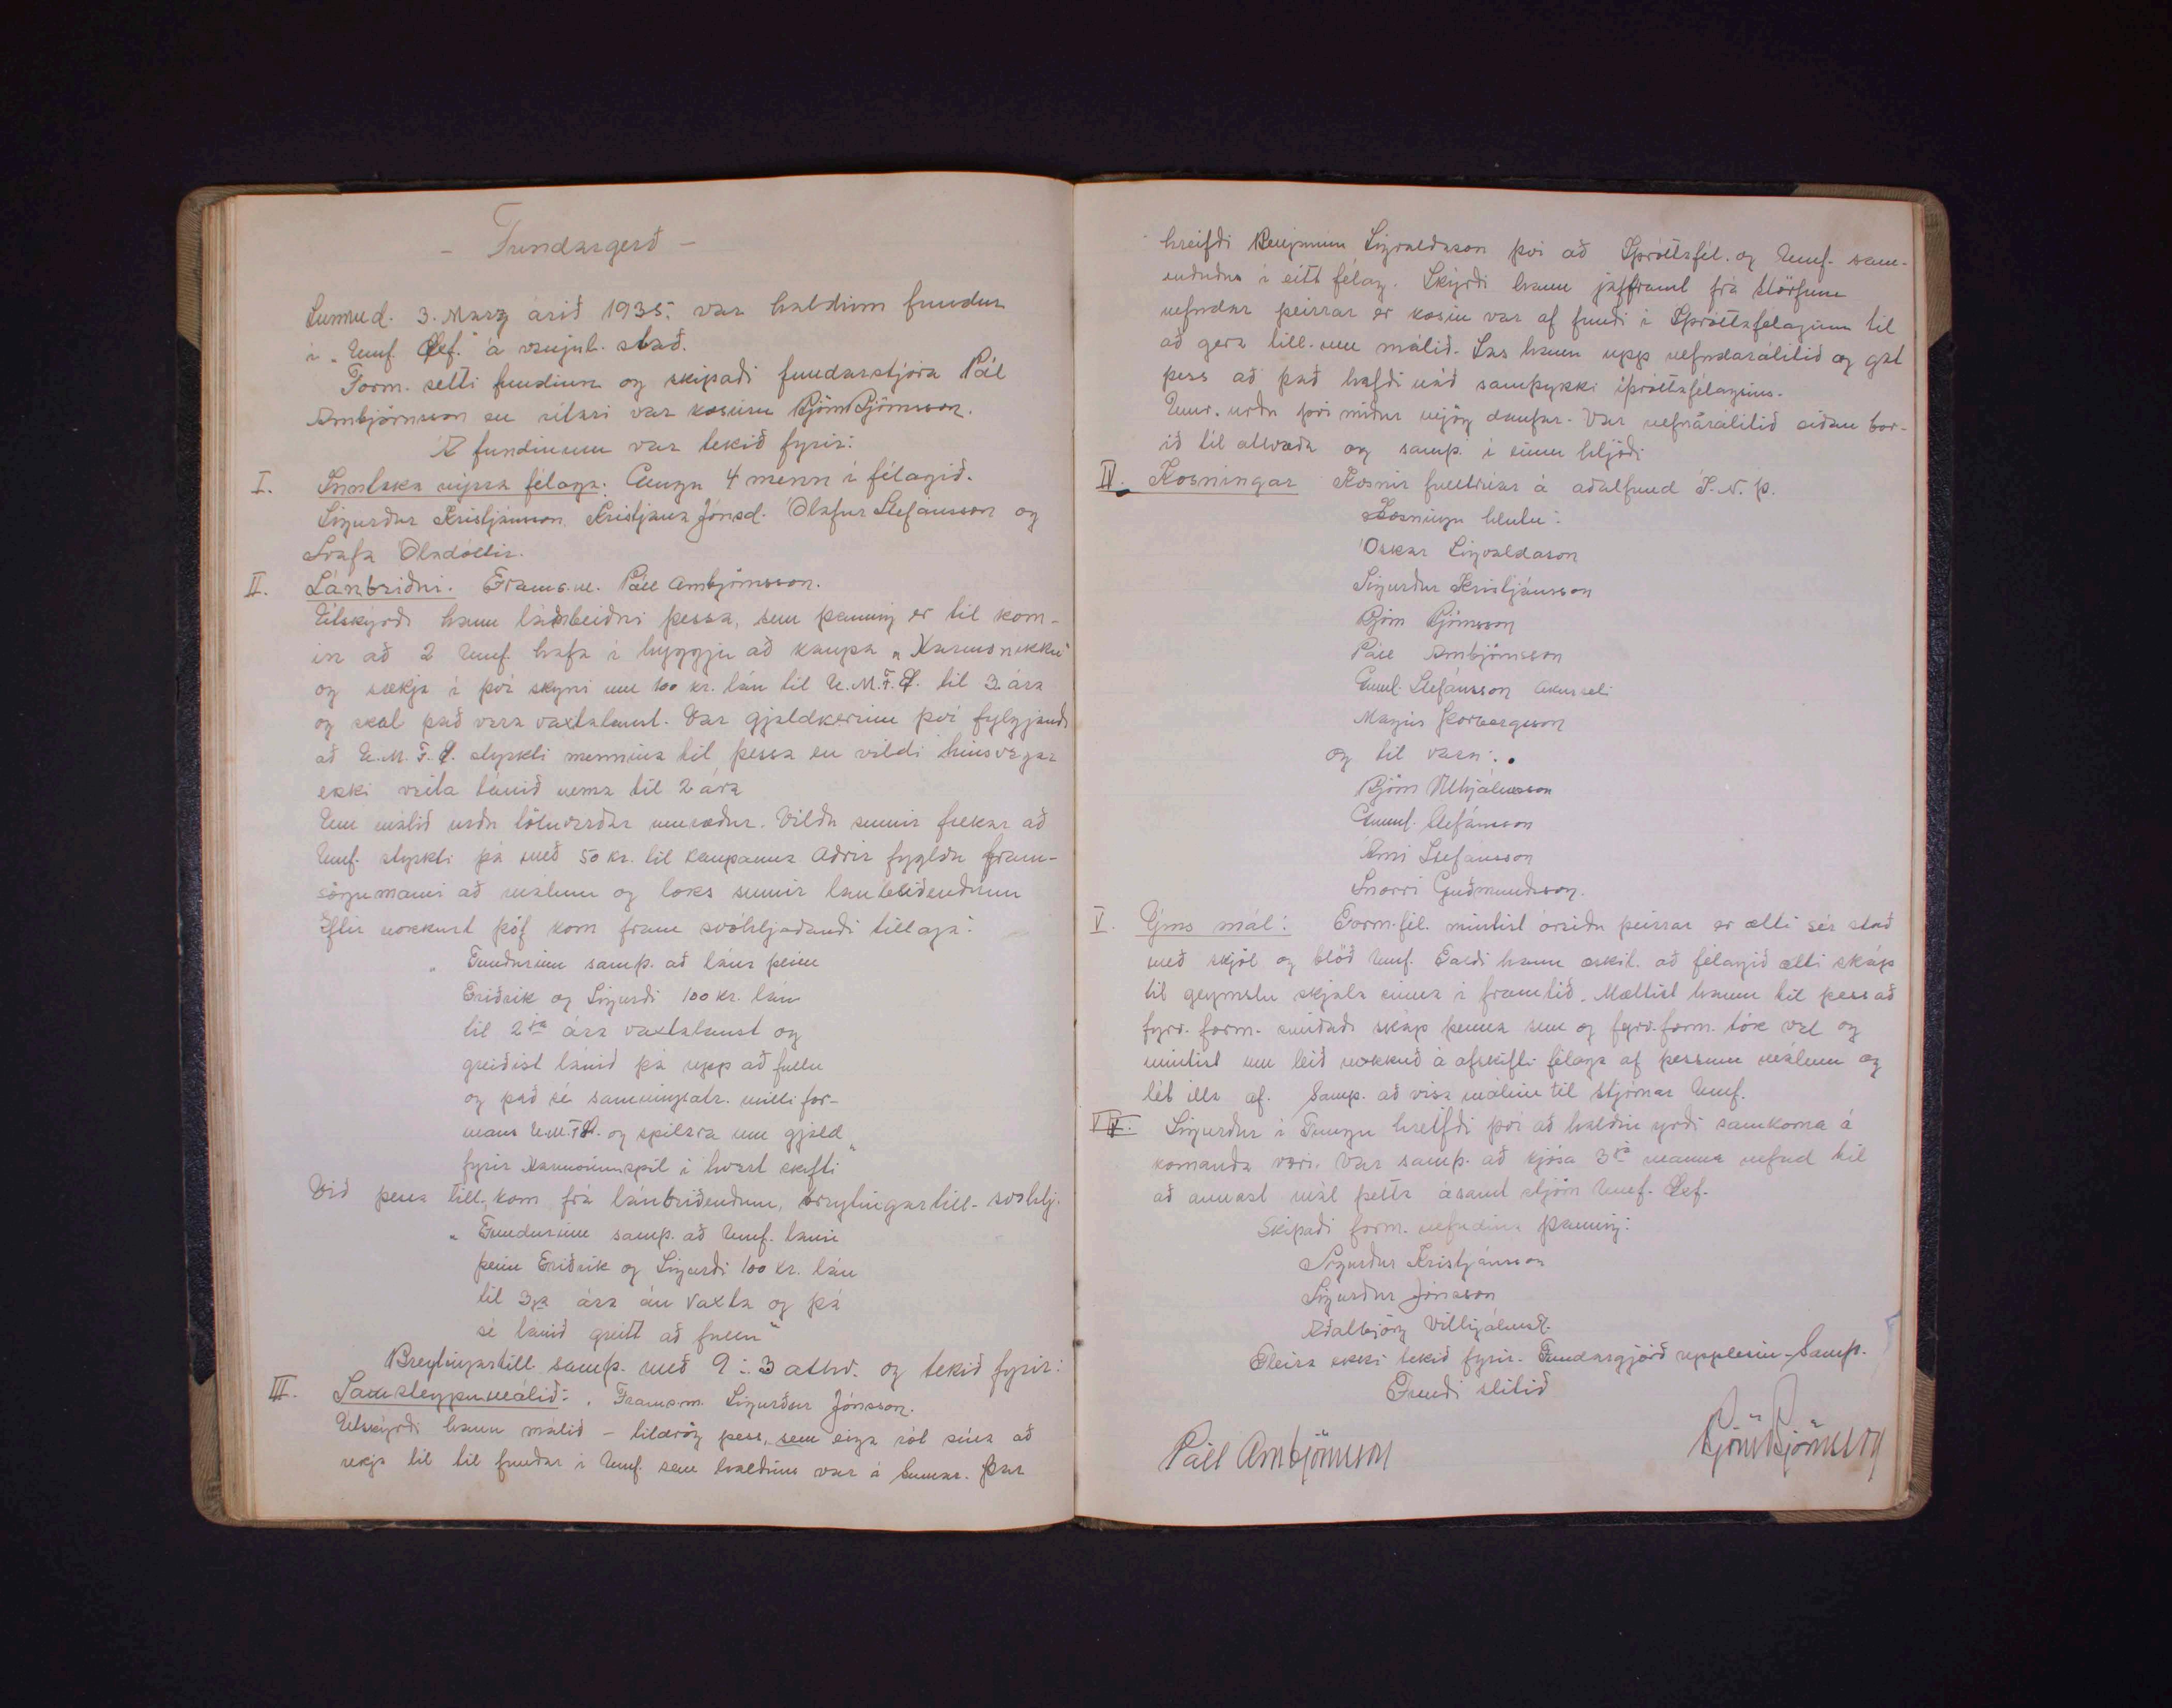 - Fundargerð -
Sunnud. 3. Marz árið 1935. var haldinn fundur
í "Umf. Leif." á venjul. stað.
Form. setti fundinn og skipaði fundarstjóra Pál
Arnbjörnsson en ritari var kosinn Björn Björnsson.
Á fundinum var tekið fyrir:
I. Inntaka nýrra félaga: Gengu 4 menn í félagið.
Sigurður Kristjánsson, Kristjana Jónsd. Ólafur Stefánsson og
Svafa Óladóttir.
II. Lánbeiðni. Frams.m. Páll Arnbjörnsson.
Útskýrði hann lánbeiðni þessa, sem þannig er til kom-
in að 2 Umf. hafa í hyggju að kaupa "Harmonikku"
og sækja í því skyni um 100 kr. lán til U.M.F.L. til 3. ára
og skal það vera vaxtalaust. Var gjaldkerinn því fylgjandi
að U.M.F.L. styrkti mennina til þessa en vildi hinsvegar
ekki veita lánið nema til 2 ára
Um málið urðu tölverðar umræður. Vildu sumir frekar að
Umf. styrkti þá með 50 kr. til kaupanna Aðrir fygldu fram-
sögumanni að málum og loks sumir lánbeiðendum
Eftir nokkurt þóf kom fram svohljóðandi tillaga:
"Fundurinn samþ. að lána þeim
Friðrik og Sigurði 100 kr. lán
til 2ja ára vaxtalaust og
greiðist lánið þá upp að fullu
og það sé samningsatr. milli for-
manns U.M.F.L. og spilara um gjald
fyrir Harmoniumspil í hvert skifti"
Við þessa till. kom frá lánbeiðendum, breytingartill- svohlj.
"Fundurinn samþ. að Umf. láni
þeim Friðrik og Sigurði 100 kr. lán
til 3ja ára án vaxta og þá
sé lánið greitt að fullu"
Breytingartill. samþ. með 9 : 3 atkv. og tekið fyrir:
III. Samsteypumálið: Frams.m. Sigurður Jónsson.
Útskýrði hann málið - tildrög þess, sem eiga rót sína að
rekja til til fundar í Umf. sem haldinn var á Sumar. Þar
hreifði Benjamín Sigvaldason því að Íþróttafél. og Umf. sam-
einuðus í eitt félag. Skýrði hann jafframt frá störfum
nefndar þeirrar er kosin var af fundi í Íþróttafélaginu til
að gera till. um málið. Las hann upp nefndarálitið og gat
þess að það hafði náð samþykki íþróttafélagsins.
Umr. urðu því miður mjög daufar. Var nefnarálitið síðan bor-
ið til atkvæða og samþ. í einu hljóði
IV. Kosningar Kosnir fulltrúar á aðalfund S.N.Þ.
Kosningu hlutu:
Óskar Sigvaldason
Sigurður Kristjánsson
Björn Björnsson
Páll Arnbjörnsson
Gunnl. Stefánsson Akurseli
Magnús Þorbergsson
og til vara:
Björn Vilhjálmsson
Gunnl. Stefánsson
Árni Stefánsson
Snorri Guðmundsson.
V. Ýms mál: Form. fél. mintist óreiðu þeirrar er ætti sér stað
með skjöl og blöð Umf. Taldi hann æskil. að félagið ætti skáp
til geymslu skjala sinna í framtíð. Mæltist hann til þess að
fyrv. form. smíðaði skáp þenna sem og fyrv. form. tók vel og
mintist um leið nokkuð á afskifti félaga af þessum málum og
lét illa af. Samp. að vísa málinu til stjórnar Umf.
VI. Sigurður í Tungu hreifði því að haldin yrði samkoma á
komanda vori. Var samþ. að kjósa 3ja manna nefnd til
að annast mál þetta ásamt stjórn Umf. Leif.
Skipaði form. nefndina þannig:
Sigurður Kristjánsson
Sigurður Jónsson
Aðalbjörg Vilhjálmsd.
Fleira ekki tekið fyrir. Fundargjörð upplesin - Samþ.
Fundi slitið
Páll Arnbjörnsson
Björn Björnsson